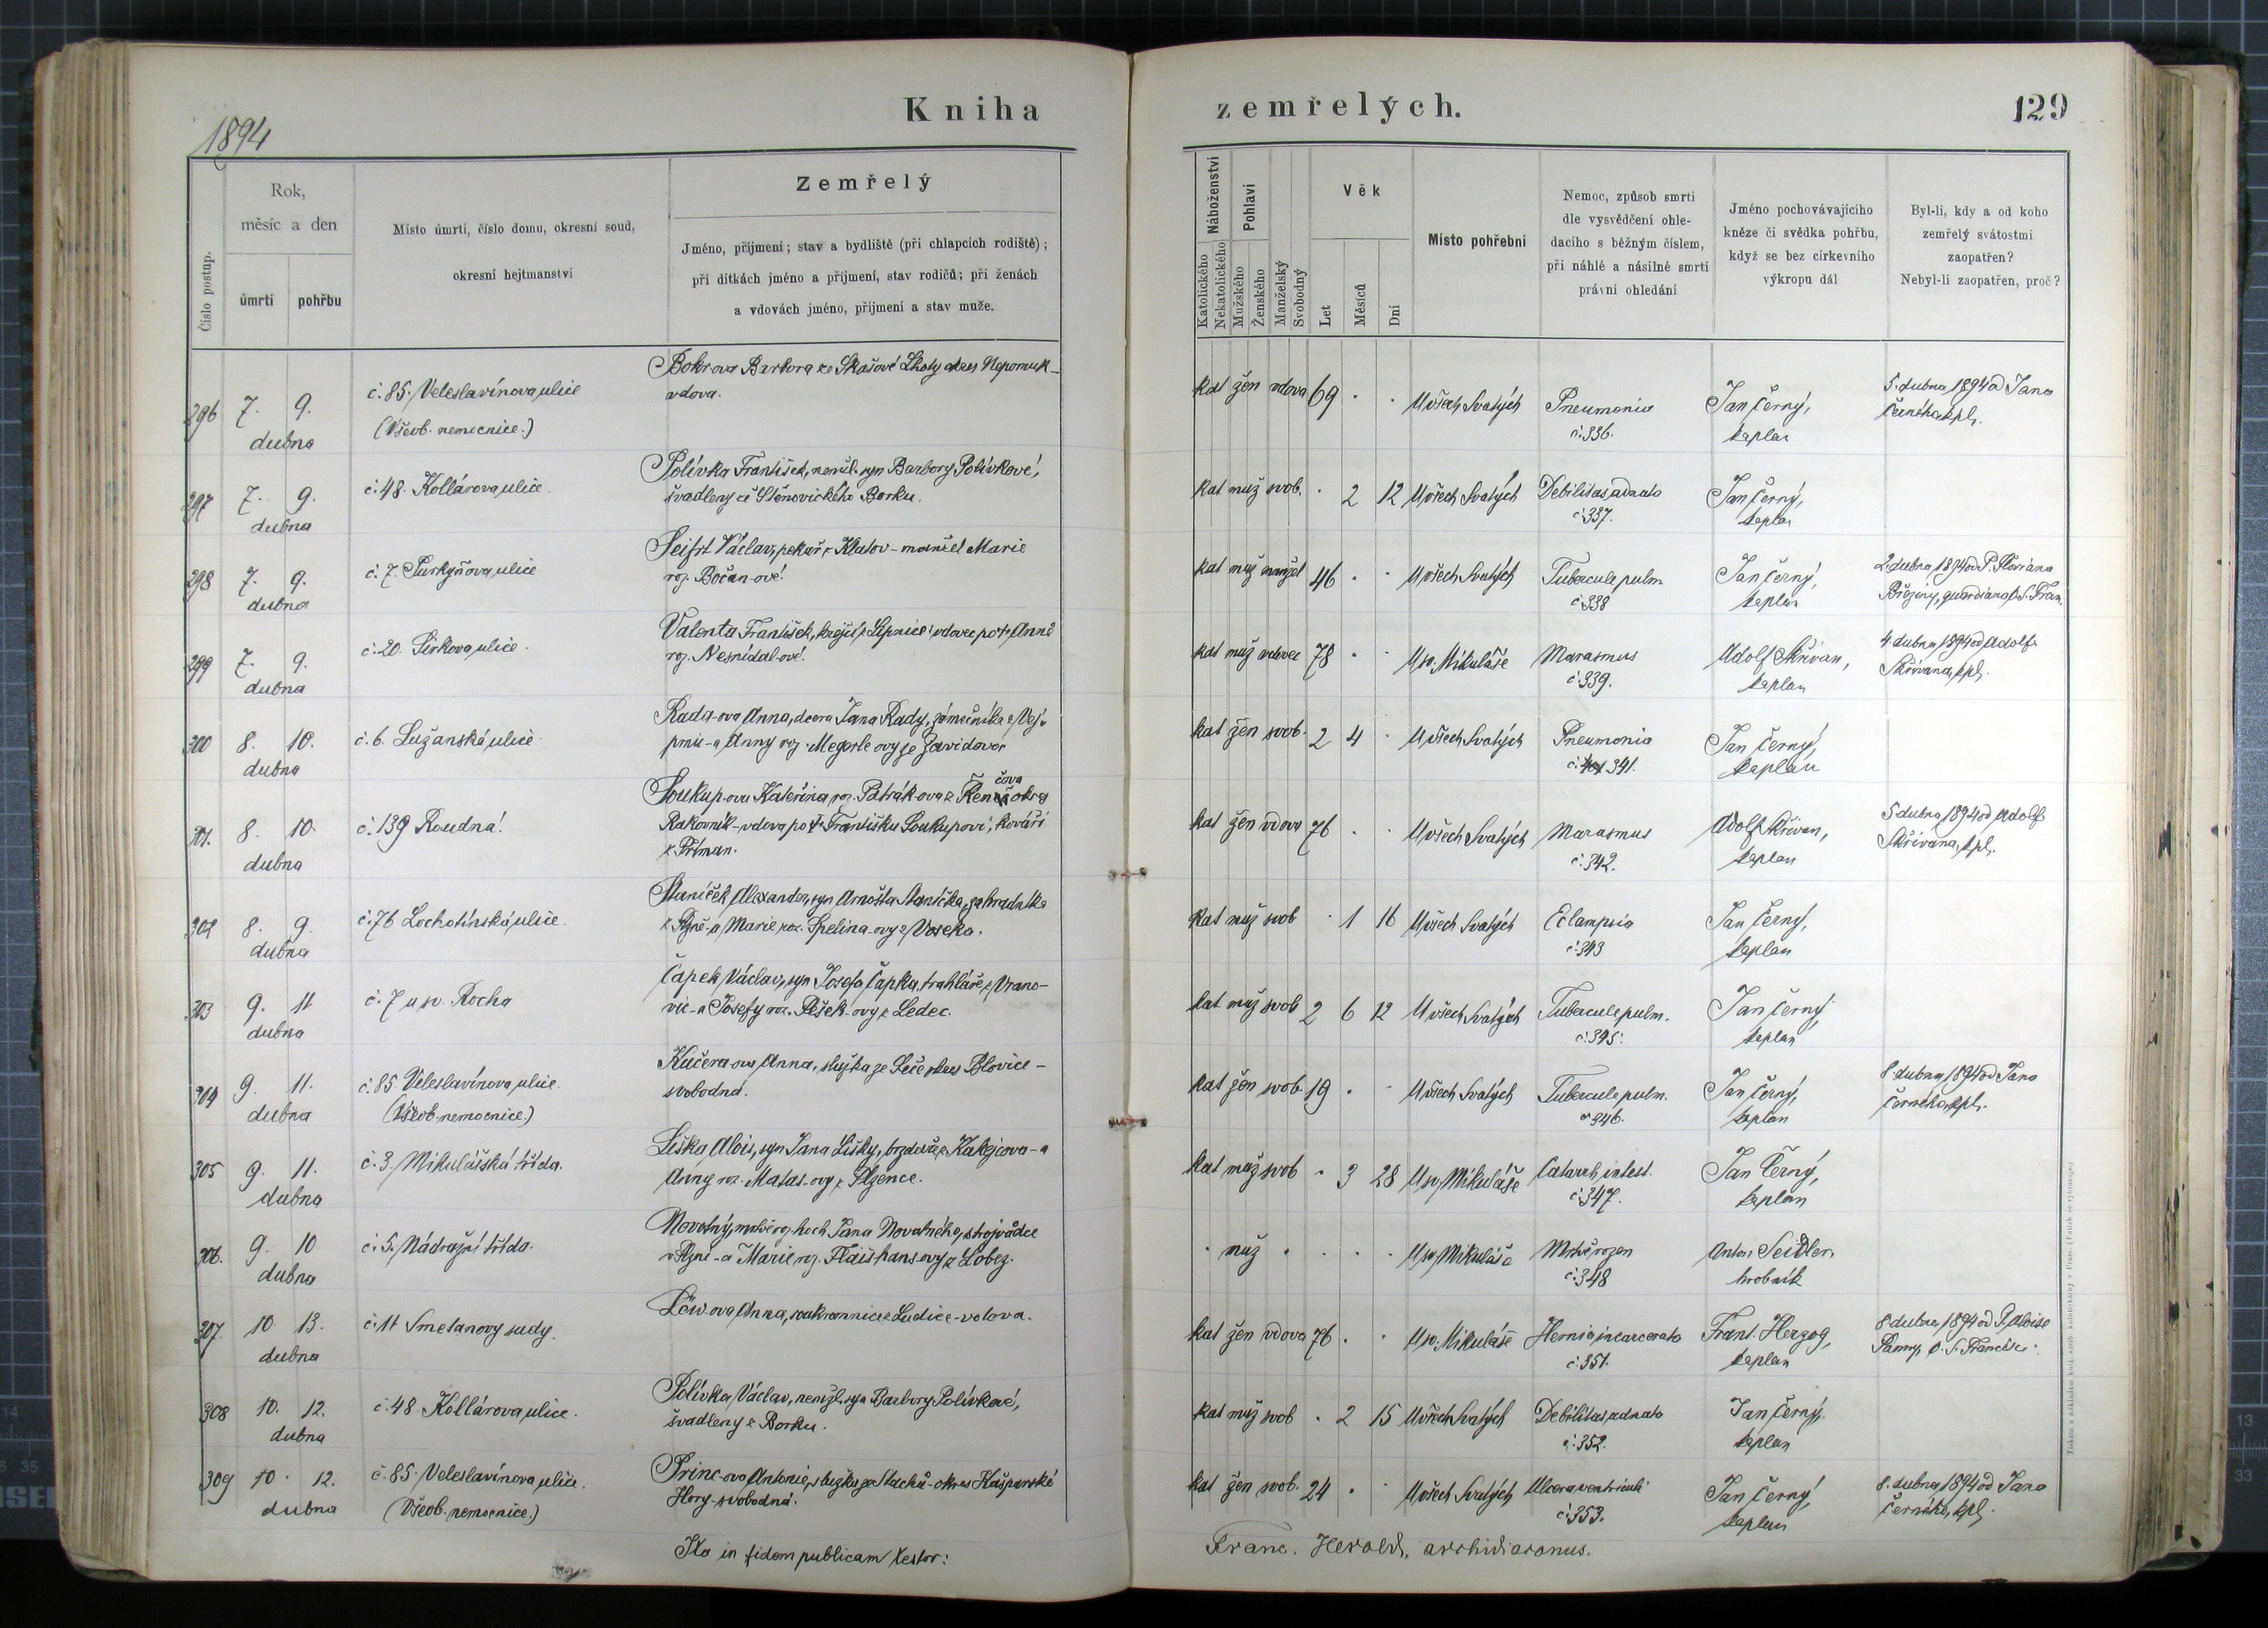 Kniha zemřelých.
129
1894
Číslo postup.
Rok,
měsíc a den
úmrtí pohřbu
Místo úmrtí, číslo domu, okresní soud,
okresní hejtmanství
Zemřelý
Jméno, příjmení; stav a bydliště (při chlapcích rodiště);
při dítkách jméno a příjmení, stav rodičů; při ženách
a vdovách jméno, příjmení a stav muže.
Náboženství
Katolického
Nekatolického
Pohlaví
Mužského
Ženského
Manželský
Svobodný
Věk
Let
Měsíců
Dní
Místo pohřební
Nemoc, způsob smrti
dle vysvědčení ohle-
dacího s běžným číslem,
při náhlé a násilné smrti
právní ohledání
Jméno pochovávajícího
kněze či svědka pohřbu,
když se bez církevního
výkropu dál
Byl-li, kdy a od koho
zemřelý svátostmi
zaopatřen?
Nebyl-li zaopatřen, proč?
296 7. 9. dubna
č. 85. Veleslavínova ulice
(Všeob. nemocnice.)
Bokrova Barbora ze Skašové Lhoty okres Nepomuk-
vdova.
kat žen vdova 69 U všech Svatých
Pneumonia
č. 336.
Jan Černý,
kaplan
5. dubna 1894 od Jana
Černého, kpl.
297 7. 9. dubna
č. 48. Kollárova ulice.
Polívka František, nemžl. syn Barbory Polívkové,
švadleny ze Štěnovického Borku.
kat muž svob. 2 12 U všech Svatých
Debilitas adnato
č. 337.
Jan Černý,
kaplan
298 7. 9. dubna
č. 7. Purkyňova ulice
Seifrt Václav, pekař z Klatov - manžel Marie
roz. Bočan-ové.
kat muž manžel 46 U všech Svatých
Tubercule pulm
č. 338
Jan Černý,
kaplan
2. dubna 1894 od P. Floriana
Březiny, guardiana
299 7. 9. dubna
č. 20. Sirkova ulice.
Valenta František, krejčí z Lipnice; vdovec po † Anně
roz. Nesnídal-ové.
kat muž vdovec 78 U sv. Mikuláše
Marasmus
č. 339.
Adolf Skřivan,
kaplan
4 dubna 1894 od Adolfa
Skřivana, kpl.
300 8. 10. dubna
č. 6. Lužanská ulice
Rada-ova Anna, dcera Jana Rady, zámečníka z Vej-
prnic - a Anny roz. Megerle ovy ze Zavidova
kat žen svob. 2 4 U všech Svatých
Pneumonia
č. 341.
Jan Černý,
kaplan
301. 8. 10. dubna
č. 139 Roudná.
čova
Soukup-ova Kateřina, roz. Petrák-ova z Řen okres
Rakovník - vdova po † Františku Soukupovi, kováři
z Příman.
kat žen vdova 76 U všech Svatých
Marasmus
č. 342.
Adolf Skřivan,
kaplan
5 dubna 1894 od Adolfa
Skřivana, kpl.
302 8. 9. dubna
č. 76 Lochotínská ulice.
Staníček Alexander, syn Arnošta Staníčka, zahradníka
z Plzně - a Marie roz. Spelina-ovy z Voseka.
kat muž svob 1 16 U všech Svatých
Eclampsia
č. 343
Jan Černý,
kaplan
303 9. 11 dubna
č. 7 u sv. Rocha
Čapek Václav, syn Josefa Čapka, truhláře z Vrano-
vic - a Josefy roz. Pešek-ovy z Ledec.
kat muž svob 2 6 12 U všech Svatých
Tubercule pulm.
č. 345.
Jan Černý
kaplan
304 9. 11. dubna
č. 85 Veleslavínova ulice.
(Všeob. nemocnice.)
Kučera-ova Anna, služka ze Seče okres Blovice -
svobodná.
kat žen svob. 19 U všech Svatých
Tubercule pulm.
č. 346.
Jan Černý,
kaplan
8. dubna 1894 od Jana
Černého, kpl.
305 9. 11. dubna
č. 3. Mikulášská třída.
Liška Alois, syn Jana Lišky, brzdaře z Kakejcova - a
Anny roz. Matas-ovy z Plzence.
kat muž svob 3 28 U sv. Mikuláše
Catarrh. intest.
č. 347.
Jan Černý,
kaplan
306. 9. 10 dubna
č. 5. Nádražní třída.
Novotný, mrtvěroz. hoch Jana Novotného, strojvůdce
v Plzni - a Marie roz. Flaišhans-ovy z Lobez.
muž U sv. Mikuláše
Mrtvěrozen
č. 348
Anton Seidler,
hrobník
307. 10 13. dubna
č. 11 Smetanovy sady.
Löw-ova Anna, soukromnice z Ludice - vdova.
kat žen vdova 76. U sv. Mikuláše
Hernia incarcerata
č. 351.
Frant. Herzog,
kaplan
8 dubna 1894 od P. Aloise
Panny, O. S. Francisci.
308 10. 12. dubna
č. 48. Kollárova ulice.
Polívka Václav, nemžl. syn Barbory Polívkové,
švadleny z Borku.
kat muž svob 2 15 U všech Svatých
Debilitas adnato
č. 352.
Jan Černý,
kaplan
309 10. 12. dubna
č. 85. Veleslavínova ulice.
(Všeob. nemocnice.)
Princ-ova Antonie, služka ze Stachů - okres Kašperské
Hory - svobodná.
kat žen svob. 24 U všech Svatých
Ulcera ventriculi
č. 353.
Jan Černý
kaplan
8. dubna 1894 od Jana
Černého, kpl.
Ita in fidem publicam testor:
Franc. Herold, archidiaconus.